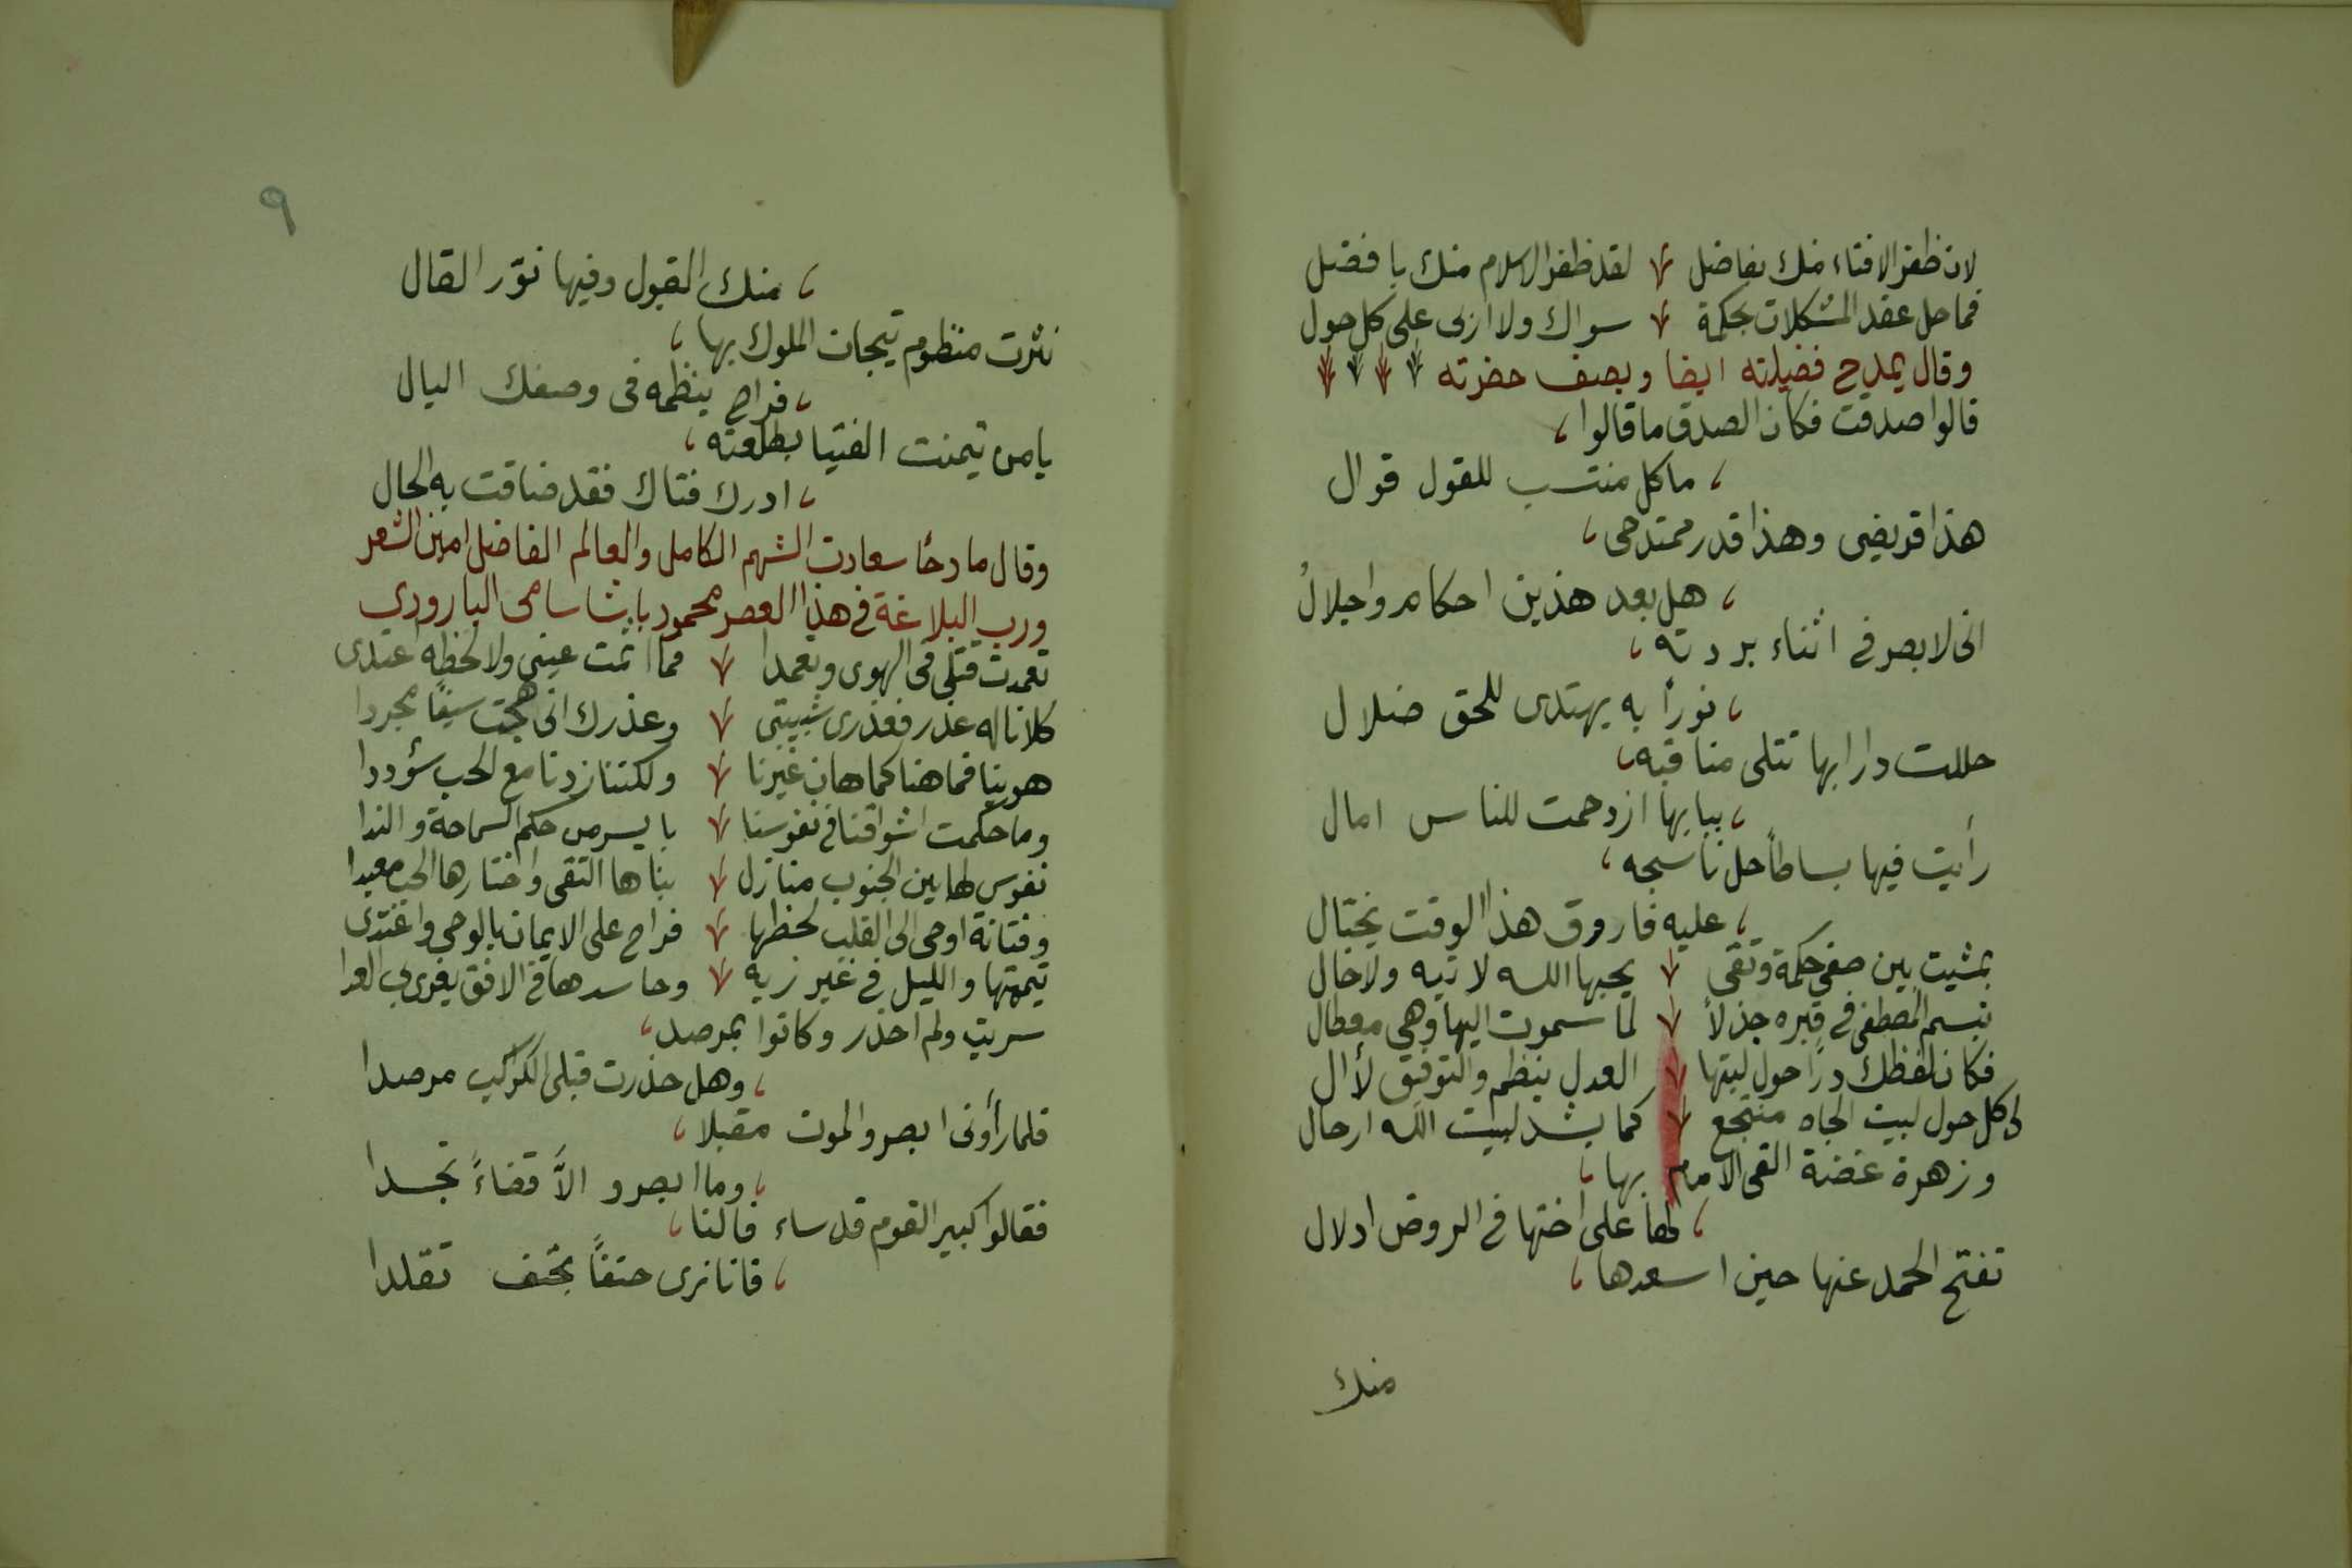 لان ظفر الافتاء منك بفاضل لقد ظفر الاسلام منك بافضل
فما حل عقد المشكلات بحكمة سواك ولا اربى على كل حول
وقال يمدح فضيلته ايضا ويصف حضرته
قالوا صدقت فكان الصدق ما قالوا
ما كل منتسب للقول قوال
هذا قريضى وهذا قدر ممتدحى
هل بعد هذين احكام واجلالُ
انى لابصر فى اثناء بردته
نوراً به يهتدى للحق ضلال
حللت دارا بها تتلى مناقبه
ببابها ازدحمت للناس امال
رأيت فيها بساطاً حل ناسجه
عليه فاروق هذا الوقت يختال
بمشيت بين صفى حكمة وتقى يحبها الله لا تيه ولا خال
تبسم المصطفى فى قبره جذلاً لما سموت اليها وهى معطال
فكان لفظك دراً حول لبتها العدل ينظم والتوفيق لأال
لى كل حول لبيت الجاه منتجع كما يشد لبيت الله ارحال
وزهرة غضة القى الامام بها
لها على اختها فى الروض ادلال
تفتح الحمد عنها حين اسعدها
منك
٩
منك القبول وفيها نوّر القال
نثرت منظوم تيجان الملوك بها
فراح ينظمه فى وصفك البال
يا من تيمنت الفتيا بطلعته
ادرك فتاك فقد ضاقت به الحال
وقال مادحاً سعادت الشهم الكامل والعالم الفاضل امين الشعر
ورب البلاغة فى هذا العصر محمود باشا سامى البارودى
تعمدت قتلى فى الهوى وتعمدا فما اثمت عينى ولا لحظه اعتدى
كلانا له عذر فعذرى شبيبتى وعذرك انى هجت سيفاً مجردا
هوينا فما هنا كما هان غيرنا ولكننا زدنا مع الحب سؤددا
وما حكمت اشواقنا فى نفوسنا بايسر من حكم السماحة والندا
نفوس لها بين الجنوب منازل بناها التقى واختارها الحب معبدا
وفتانة اوحى الى القلب لحظها فراح على الايمان بالوحى واغتدى
تيممتها والليل فى غير زيه وحاسدها فى الافق يغرى بي العدا
سريت ولم احذر وكانوا بمرصد
وهل حذرت قبلى الكواكب مرصدا
فلما رأونى ابصروا الموت مقبلا
وما ابصروا الاَّ قضاءً تجسدا
فقالوا كبير القوم قد ساء فالنا
فانا نرى حتفاً بحتف تقلدا